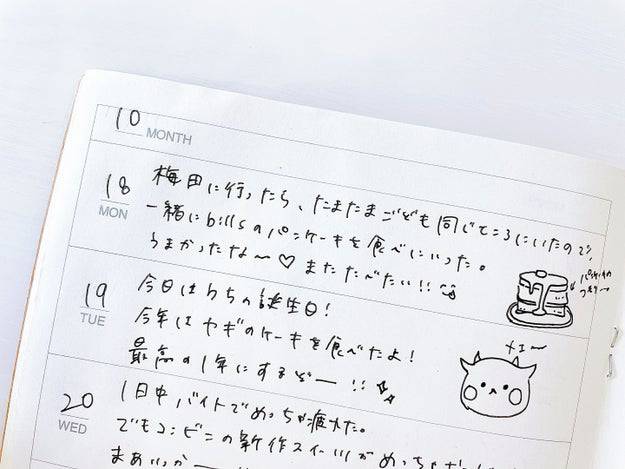 10 MONTH
18 MON
梅田に行ったら、たまたまごども同じところにいたので、
一緒にbillsのパンケーキを食べにいった。
うまかったな〜♡ またたべたい!!
パンケーキの
つもり→
19 TUE
今日はうちの誕生日!
今年はヤギのケーキを食べたよ!
最高の1年にするぞー!!
メェ〜
20 WED
1日中バイトでめっちゃ疲れた。
でもコンビニの新作スイーツがめっちゃ
まあいっかー